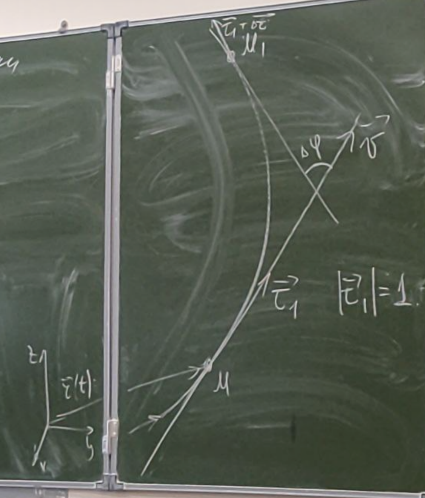 τ⃗₁+Δτ⃗
M₁
Δφ
v⃗
τ⃗₁ |τ⃗₁|=1.
z
r⃗(t)
M
y
x